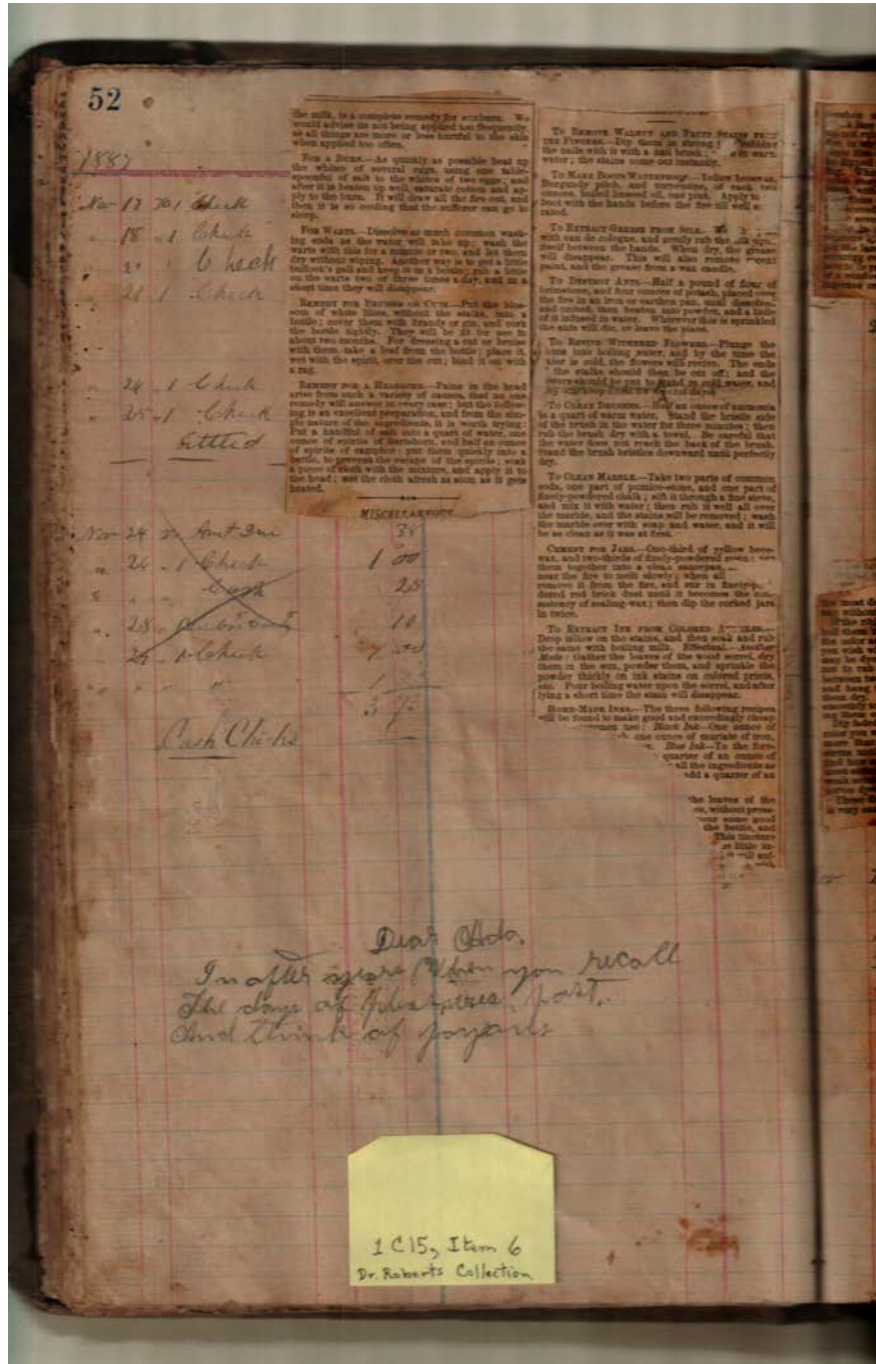 52
1887
Nov 17 To 1 Check
" 18 " 1 Check
" 21 " 1 Check
" 21 1 Check
" 24 " 1 Check
" 25 " 1 Check
Settled
Nov 24 38
" 26 " 1 Check 1 00
" " " Cash 25
" 28 10
" 29 " Check
" " " "
3
Cash Checks
the milk, is a complete remedy for sunburn. We
would advise its not being applied too frequently,
as all things are more or less hurtful to the skin
when applied too often.
FOR A BURN.—As quickly as possible beat up
the whites of several eggs, using one table-
spoonful of salt to the whites of two eggs, and
after it is beaten up well, saturate cotton and ap-
ply to the burn. It will draw all the fire out, and
then it is so cooling that the sufferer can go to
sleep.
FOR WARTS.—Dissolve as much common wash-
ing soda as the water will take up; wash the
warts with this for a minute or two, and let them
dry without wiping. Another way is to get a little
bullock's gall and keep it in a bottle; rub a little
on the warts two or three times a day, and in a
short time they will disappear.
REMEDY FOR BRUISES OR CUTS.—Put the blos-
som of white lilies, without the stalks, into a
bottle; cover them with brandy or gin, and cork
the bottle tightly. They will be fit for use in
about two months. For dressing a cut or bruise
with them, take a leaf from the bottle; place it,
wet with the spirit, over the cut; bind it on with
a rag.
REMEDY FOR A HEADACHE.—Pains in the head
arise from such a variety of causes, that no one
remedy will answer in every case; but the follow-
ing is an excellent preparation, and from the sim-
ple nature of the ingredients, it is worth trying:
Put a handful of salt into a quart of water, one
ounce of spirits of hartshorn, and half an ounce
of spirits of camphor; put them quickly into a
bottle, to prevent the escape of the spirits; soak
a piece of cloth with the mixture, and apply it to
the head; wet the cloth afresh as soon as it gets
heated.
MISCELLANEOUS
TO REMOVE WALNUT AND FRUIT STAINS FROM
THE FINGERS.—Dip them in strong
the nails with it with a nail brush; in warm
water; the stains come out instantly.
TO MAKE BOOTS WATERPROOF.—Yellow beeswax,
Burgundy pitch, and turpentine, of each two
ounces, boiled linseed oil, one pint. Apply to
boot with the hands before the fire till well
rated.
TO EXTRACT GREASE FROM SILK.
with eau de cologne, and gently rub the silk upon
itself between the hands. When dry, the grease
will disappear. This will also remove
paint, and the grease from a wax candle.
TO DESTROY ANTS.—Half a pound of flour of
brimstone, and four ounces of potash, placed over
the fire in an iron or earthen pan, until dissolved
and united; then beaten into powder, and a little
of it infused in water. Wherever this is sprinkled
the ants will die, or leave the place.
TO REVIVE WITHERED FLOWERS.—Plunge the
stems into boiling water, and by the time the
water is cold, the flowers will revive. The ends
the stalks should then be cut off; and the
flowers should be put to stand in cold water, and
TO CLEAN BRUSHES.—Half an ounce of ammonia
to a quart of warm water. Stand the bristly side
of the brush in the water for three minutes; then
rub the brush dry with a towel. Be careful that
the water does not reach the back of the brush.
Stand the brush bristles downward until perfectly
dry.
TO CLEAN MARBLE.—Take two parts of common
soda, one part of pumice-stone, and one part of
finely-powdered chalk; sift it through a fine sieve,
and mix it with water; then rub it well all over
the marble, and the stains will be removed; wash
the marble over with soap and water, and it will
be as clean as it was at first.
CEMENT FOR JARS.—One-third of yellow bees-
wax, and two-thirds of finely-powdered
them together into a clean saucepan,
near the fire to melt slowly; when all
remove it from the fire, and stir in
dered red brick dust until it becomes the con-
sistency of sealing-wax; then dip the corked jars
in twice.
TO EXTRACT INK FROM COLORED
Drop tallow on the stains, and then soak and rub
the same with boiling milk. Effectual. Another
Mode: Gather the leaves of the wood sorrel, dry
them in the sun, powder them, and sprinkle the
powder thickly on ink stains on colored prints,
etc. Pour boiling water upon the sorrel, and after
lying a short time the stain will disappear.
HOME-MADE INKS.—The three following recipes
will be found to make good and exceedingly cheap
common use: Black Ink—One ounce of
one ounce of muriate of iron,
Blue Ink—To the fore-
quarter of an ounce of
all the ingredients as
add a quarter of an
the leaves of the
without press-
some good
the bottle, and
This tincture
little in-
will suf-
with
Dear Ada,
In after years when you recall
The days of pleasures past,
And think of
1 C15, Item 6
Dr. Roberts Collection